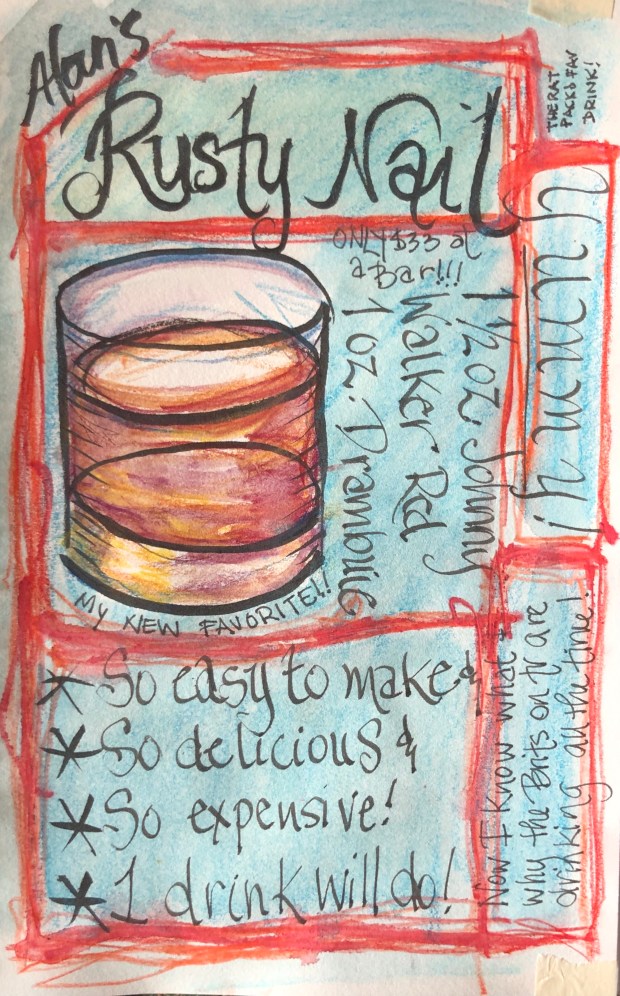 Alan's
Rusty Nail
THE RAT
PACKS FAV
DRINK!
ONLY $33 at
a Bar!!!
1 1/2 oz. Johnny
Walker Red
1 oz. Drambuie
Yummy!
MY NEW FAVORITE!!
* So easy to make &
* So delicious &
* So expensive!
* 1 drink will do!
Now I know what &
why the Brits on tv are
drinking all the time!